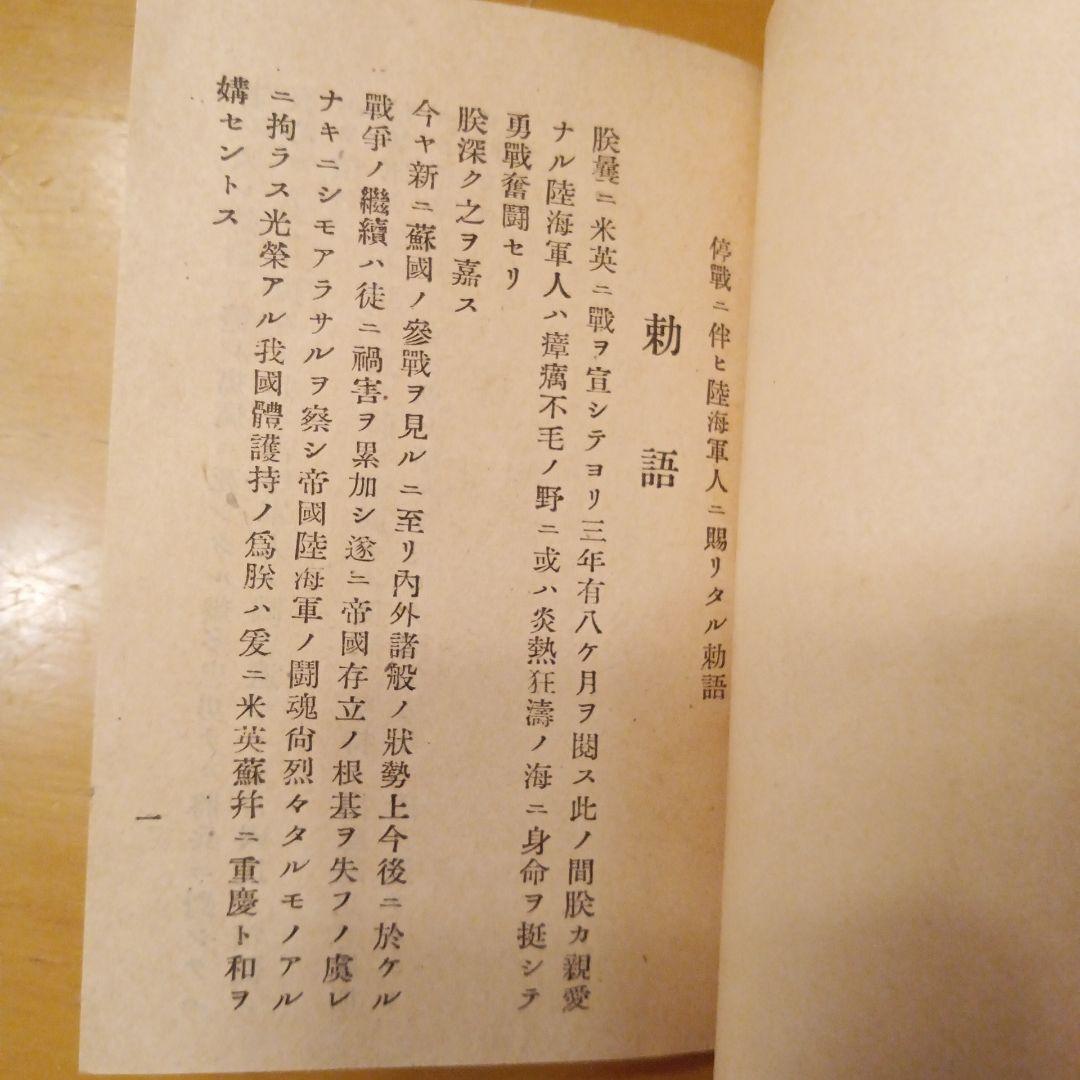 停戰ニ伴ヒ陸海軍人ニ賜リタル勅語
勅語
朕曩ニ米英ニ戰ヲ宣シテヨリ三年有八ケ月ヲ閱ス此ノ間朕カ親愛
ナル陸海軍人ハ瘴癘不毛ノ野ニ或ハ炎熱狂濤ノ海ニ身命ヲ挺シテ
勇戰奮鬪セリ
朕深ク之ヲ嘉ス
今ヤ新ニ蘇國ノ參戰ヲ見ルニ至リ內外諸般ノ狀勢上今後ニ於ケル
戰爭ノ繼續ハ徒ニ禍害ヲ累加シ遂ニ帝國存立ノ根基ヲ失フノ虞レ
ナキニシモアラサルヲ察シ帝國陸海軍ノ鬪魂尙烈々タルモノアル
ニ拘ラス光榮アル我國體護持ノ爲朕ハ爰ニ米英蘇幷ニ重慶ト和ヲ
媾セントス
一